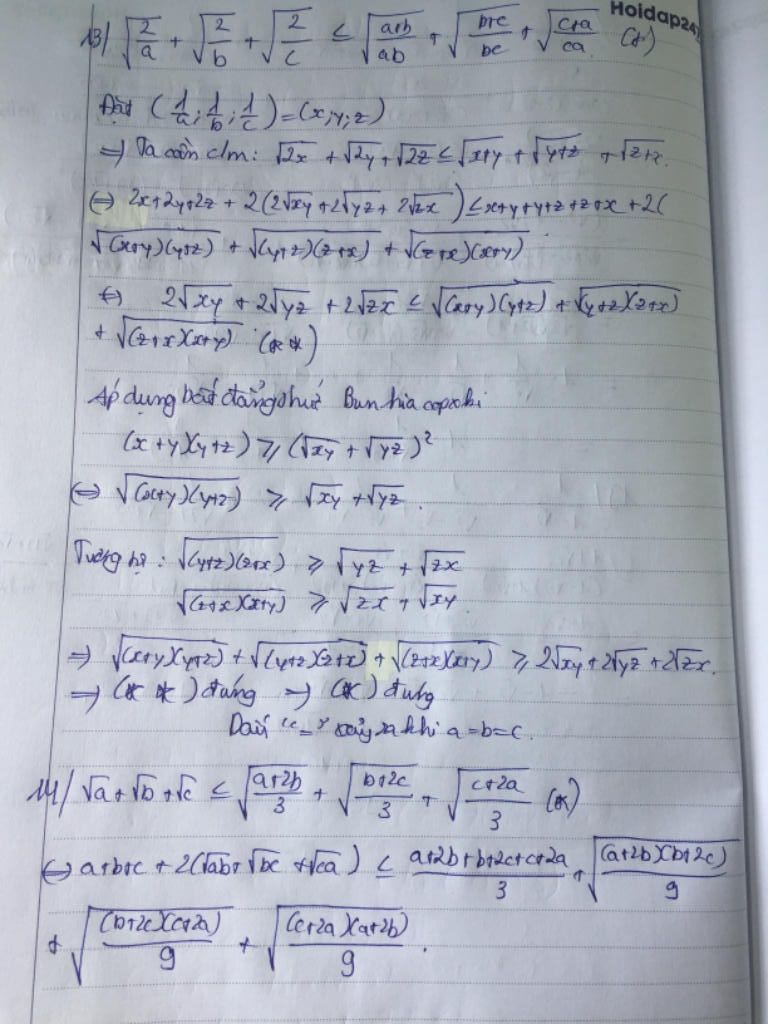 Hoidap247
13/ √(2/a) + √(2/b) + √(2/c) ≤ √((a+b)/(ab)) + √((b+c)/(bc)) + √((c+a)/(ca)) (*)
Đặt (1/a; 1/b; 1/c) = (x; y; z)
⇒ Ta cần c/m: √2x + √2y + √2z ≤ √(x+y) + √(y+z) + √(z+x).
⇔ 2x+2y+2z + 2(2√xy + 2√yz + 2√zx) ≤ x+y+y+z+z+x + 2(
√((x+y)(y+z)) + √((y+z)(z+x)) + √((z+x)(x+y))
⇔ 2√xy + 2√yz + 2√zx ≤ √((x+y)(y+z)) + √((y+z)(z+x))
+ √((z+x)(x+y)) (**)
Áp dụng bất đẳng thức Bunhiacopxki
(x+y)(y+z) ≥ (√xy + √yz)²
⇔ √((x+y)(y+z)) ≥ √xy + √yz.
Tương tự: √((y+z)(z+x)) ≥ √yz + √zx
√((z+x)(x+y)) ≥ √zx + √xy
⇒ √((x+y)(y+z)) + √((y+z)(z+x)) + √((z+x)(x+y)) ≥ 2√xy + 2√yz + 2√zx.
⇒ (**) đúng ⇒ (*) đúng
Dấu "=" xảy ra khi a=b=c.
14/ √a + √b + √c ≤ √((a+2b)/3) + √((b+2c)/3) + √((c+2a)/3) (*)
⇔ a+b+c + 2(√ab + √bc + √ca) ≤ (a+2b+b+2c+c+2a)/3 + √((a+2b)(b+2c)/9)
+ √((b+2c)(c+2a)/9) + √((c+2a)(a+2b)/9).